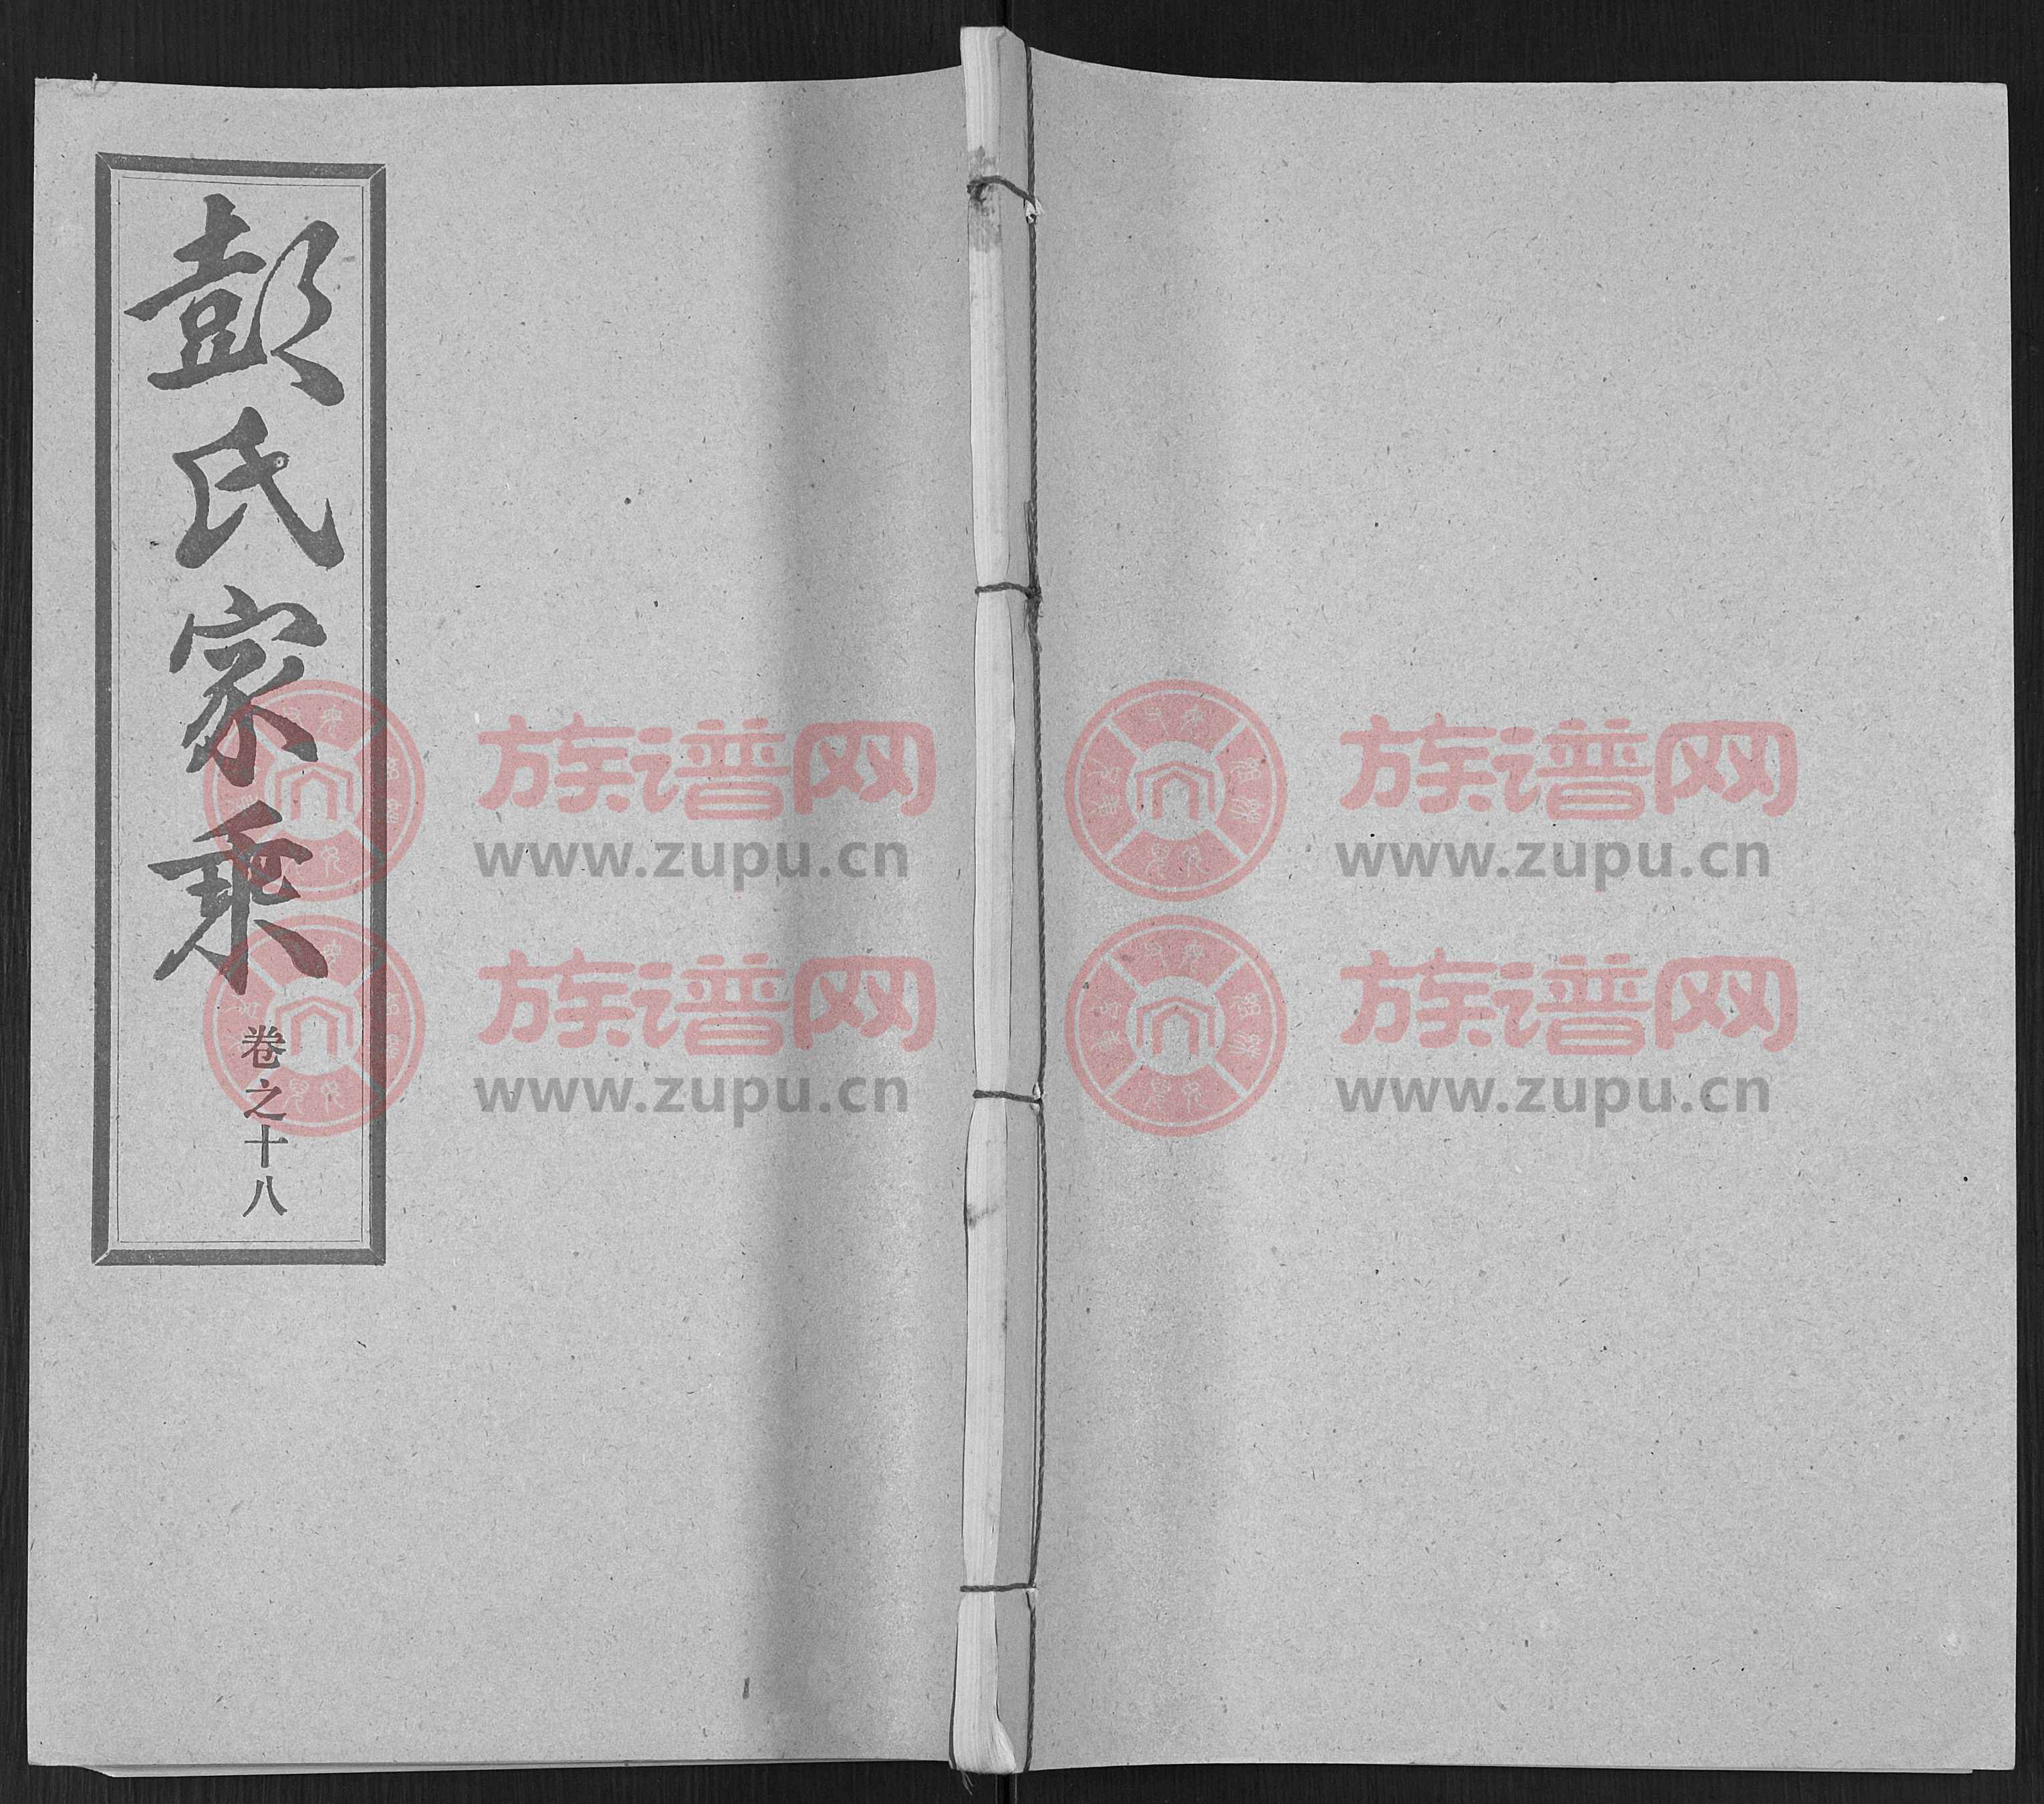 彭氏家乘
卷之十八
族谱网
www.zupu.cn
族谱网
www.zupu.cn
族谱网
www.zupu.cn
族谱网
www.zupu.cn